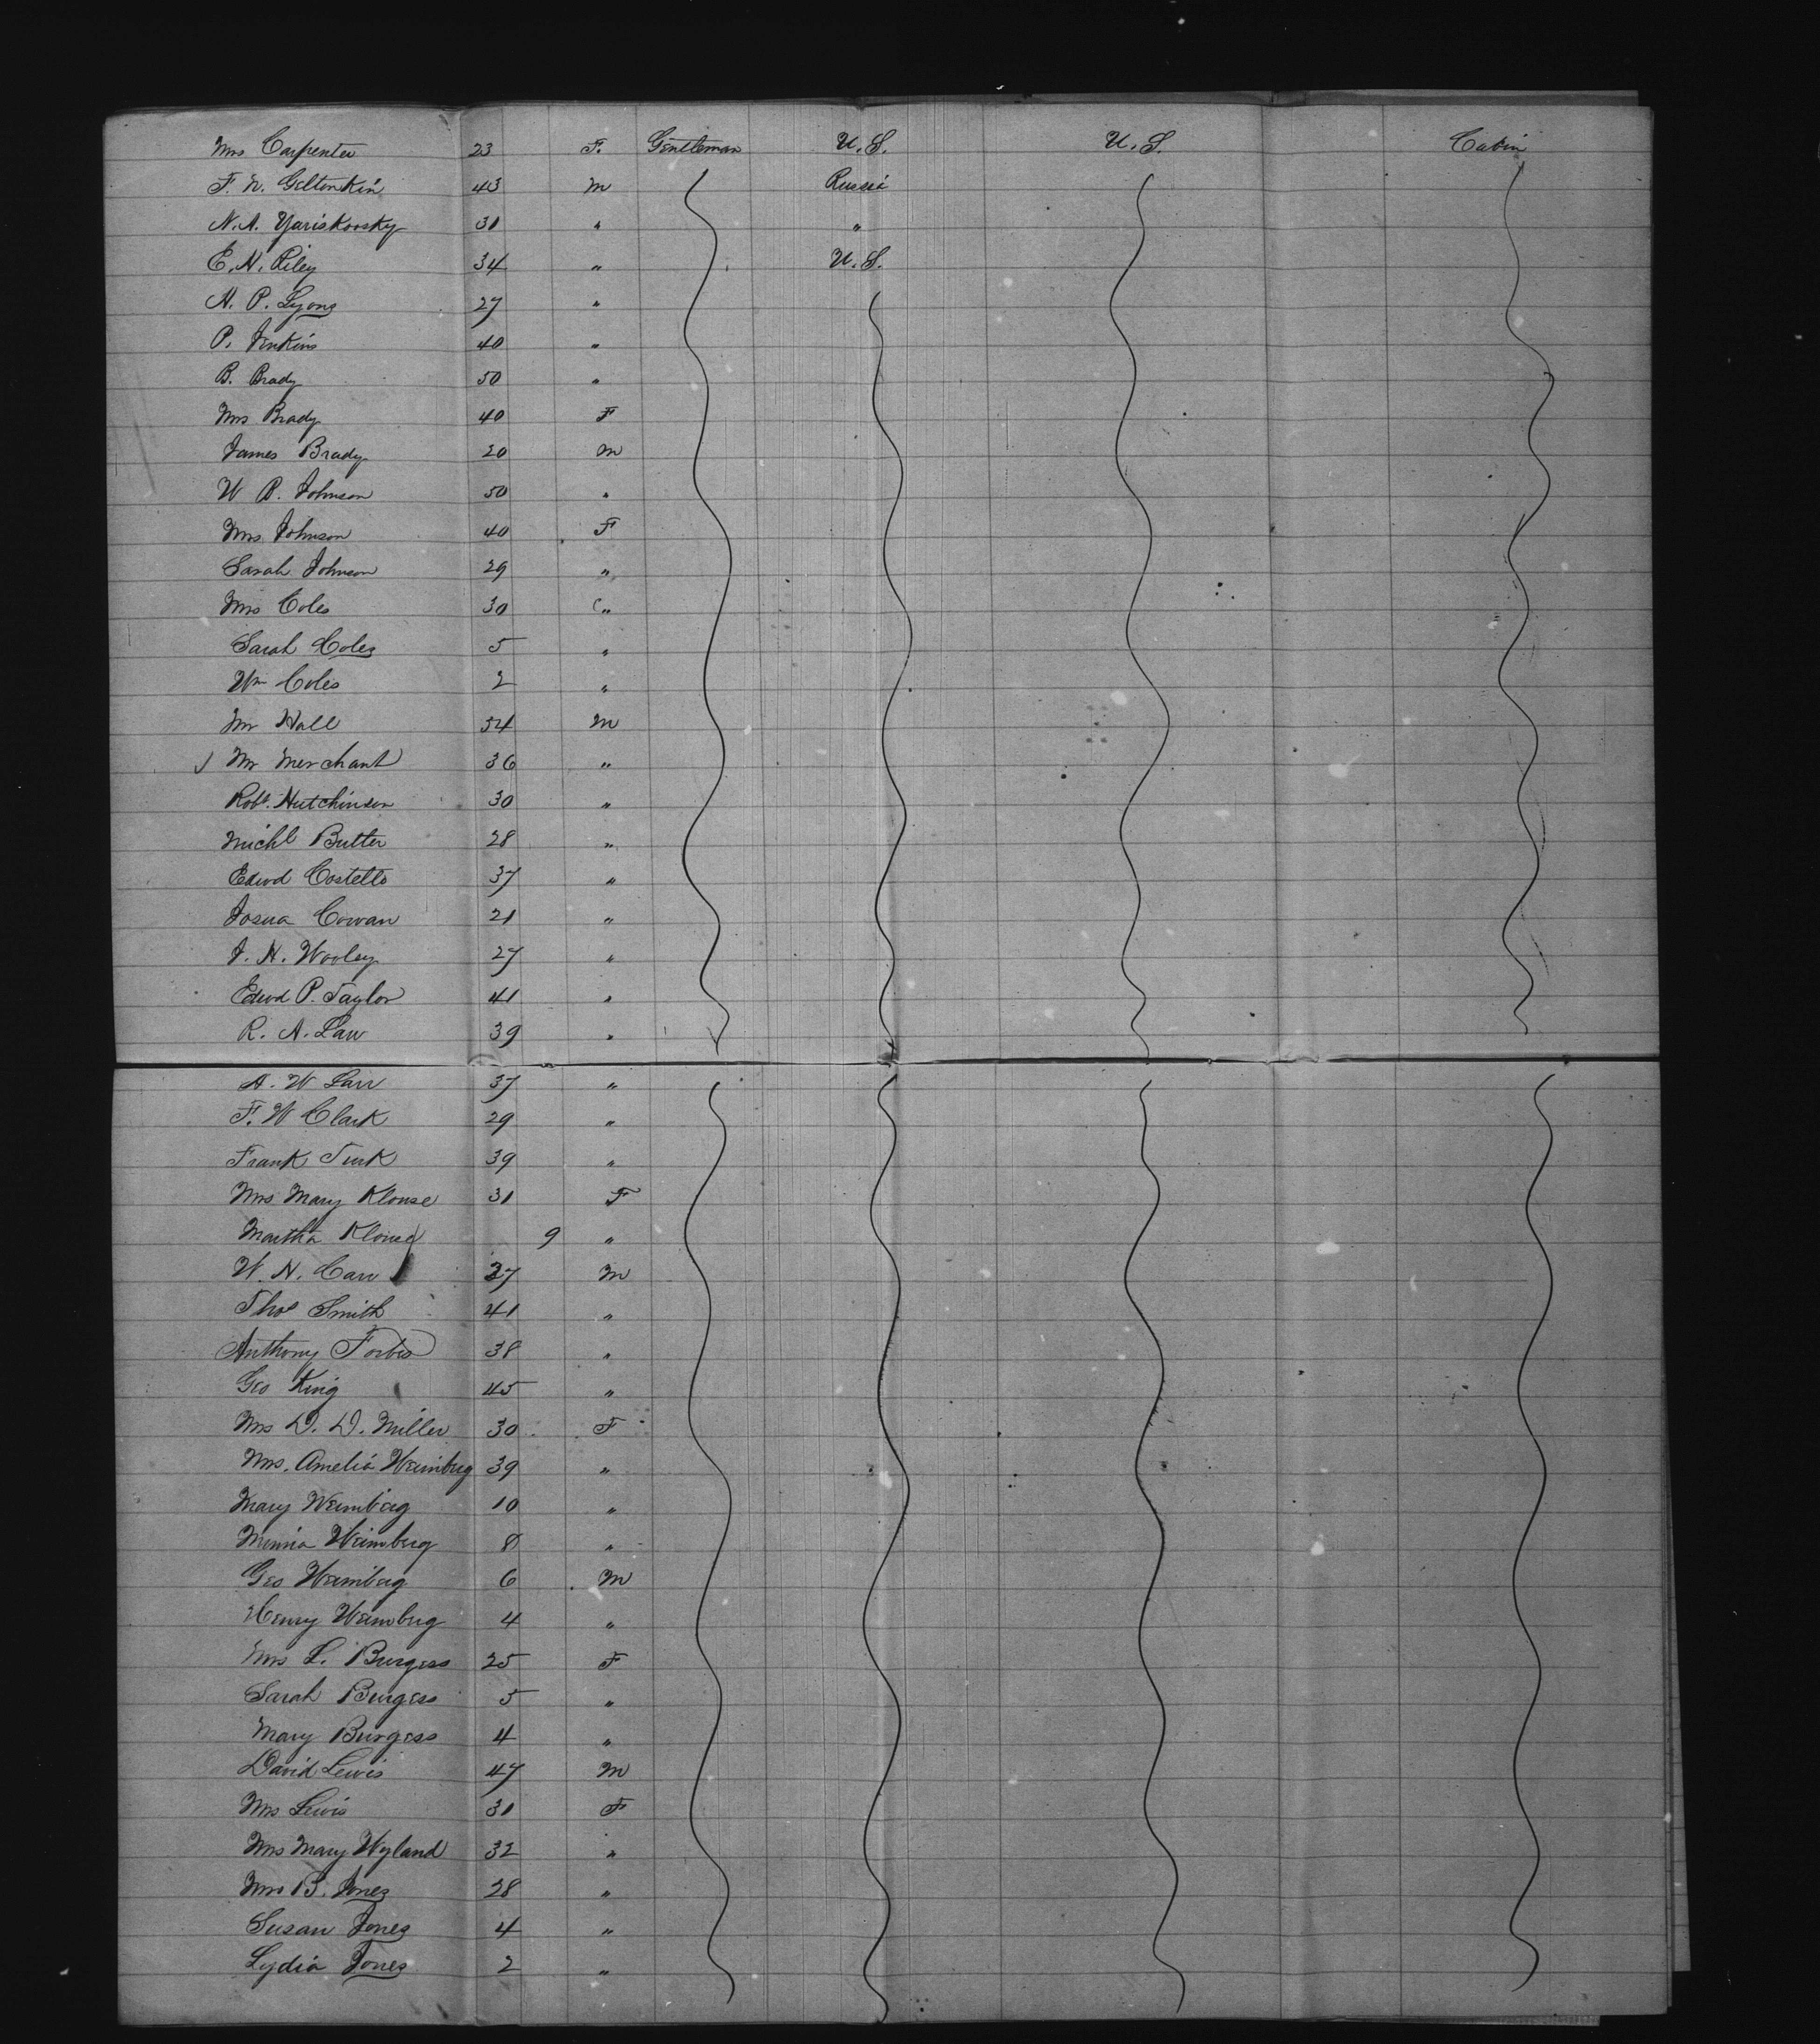 Mrs Carpenter 23 F. Gentleman U.S. U.S. Cabin
F. N. Geltenkin 43 M Russia
N. A. Yariskovsky 31 " "
E. H. Riley 34 " U.S.
H. P. Lyons 27 "
P. Jenkins 40 "
B. Brady 50 "
Mrs Brady 40 F
James Brady 20 M
W P. Johnson 50 "
Mrs Johnson 40 F
Sarah Johnson 29 "
Mrs Coles 30 "
Sarah Coles 5 "
Wm Coles 2 "
Mr Hall 54 M
✓ Mr Merchant 36 "
Robt. Hutchinson 30 "
Michl Butler 28 "
Edwd Costello 37 "
Josua Cowan 21 "
J. H. Wooley 27 "
Edwd P. Taylor 41 "
R. A. Law 39 "
A. W Law 37 "
F. W Clark 29 "
Frank Turk 39 "
Mrs Mary Klouse 31 F
Martha Klouse 9 "
W. H. Carr 27 M
Thos Smith 41 "
Anthony Forbes 38 "
Geo King 45 "
Mrs D. D. Miller 30 F
Mrs. Amelia Weimberg 39 "
Mary Weimberg 10 "
Minnia Weimberg 8 "
Geo Weimberg 6 M
Henry Weimberg 4 "
Mrs L. Burgess 25 F
Sarah Burgess 5 "
Mary Burgess 4 "
David Lewis 47 M
Mrs Lewis 31 F
Mrs Mary Wyland 32 "
Mrs B. Jones 28 "
Susan Jones 4 "
Lydia Jones 2 "